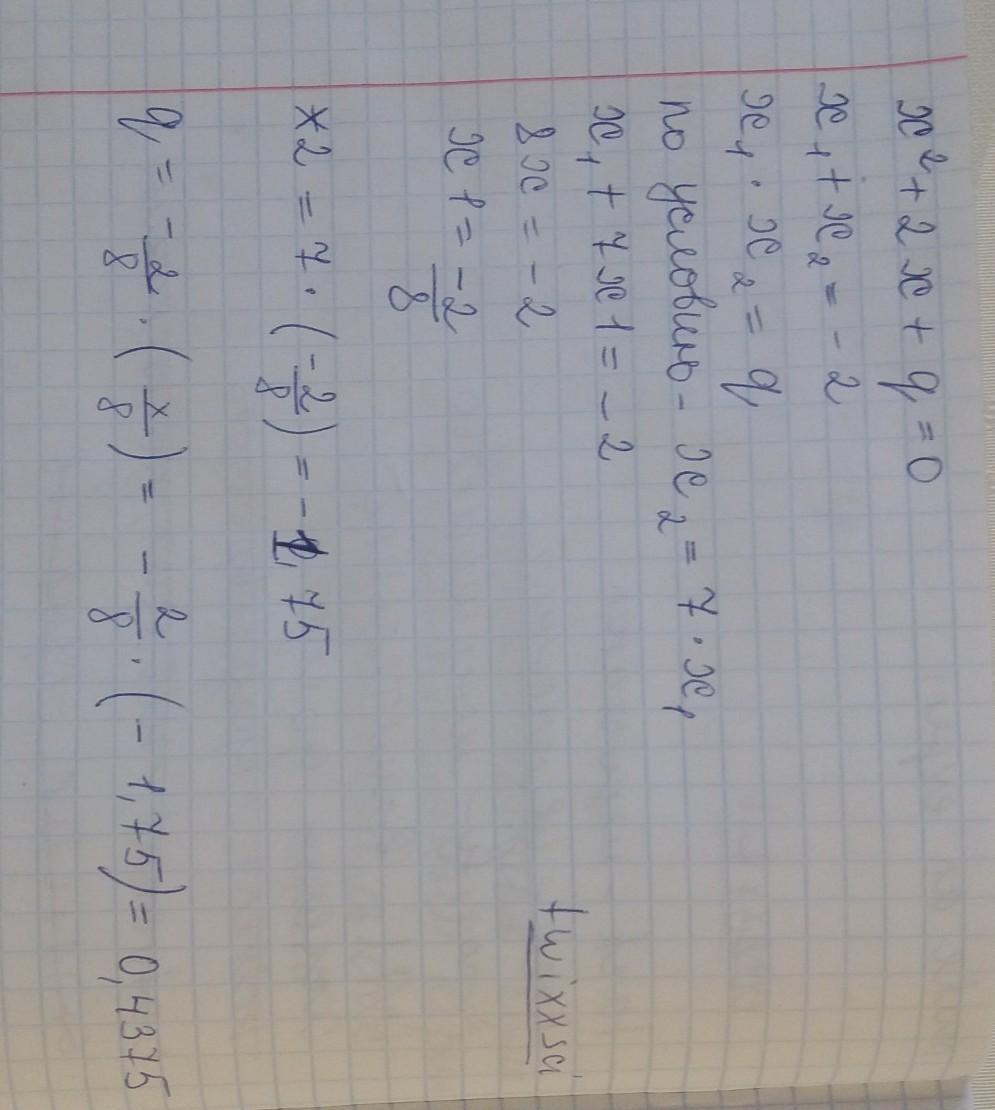 x² + 2x + q = 0
x₁ + x₂ = - 2
x₁ · x₂ = q
по условию - x₂ = 7 · x₁
x₁ + 7x1 = - 2
8x = - 2
x1 = -2/8
x2 = 7 · (-2/8) = - 1,75
q = -2/8 · (x/8) = - 2/8 · (- 1,75) = 0,4375
twixxsci